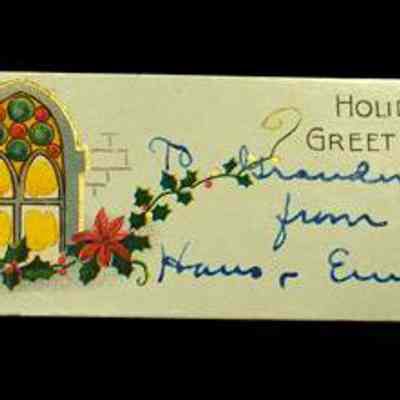 HOLID
GREET
To Grandm
from
Hans & Em